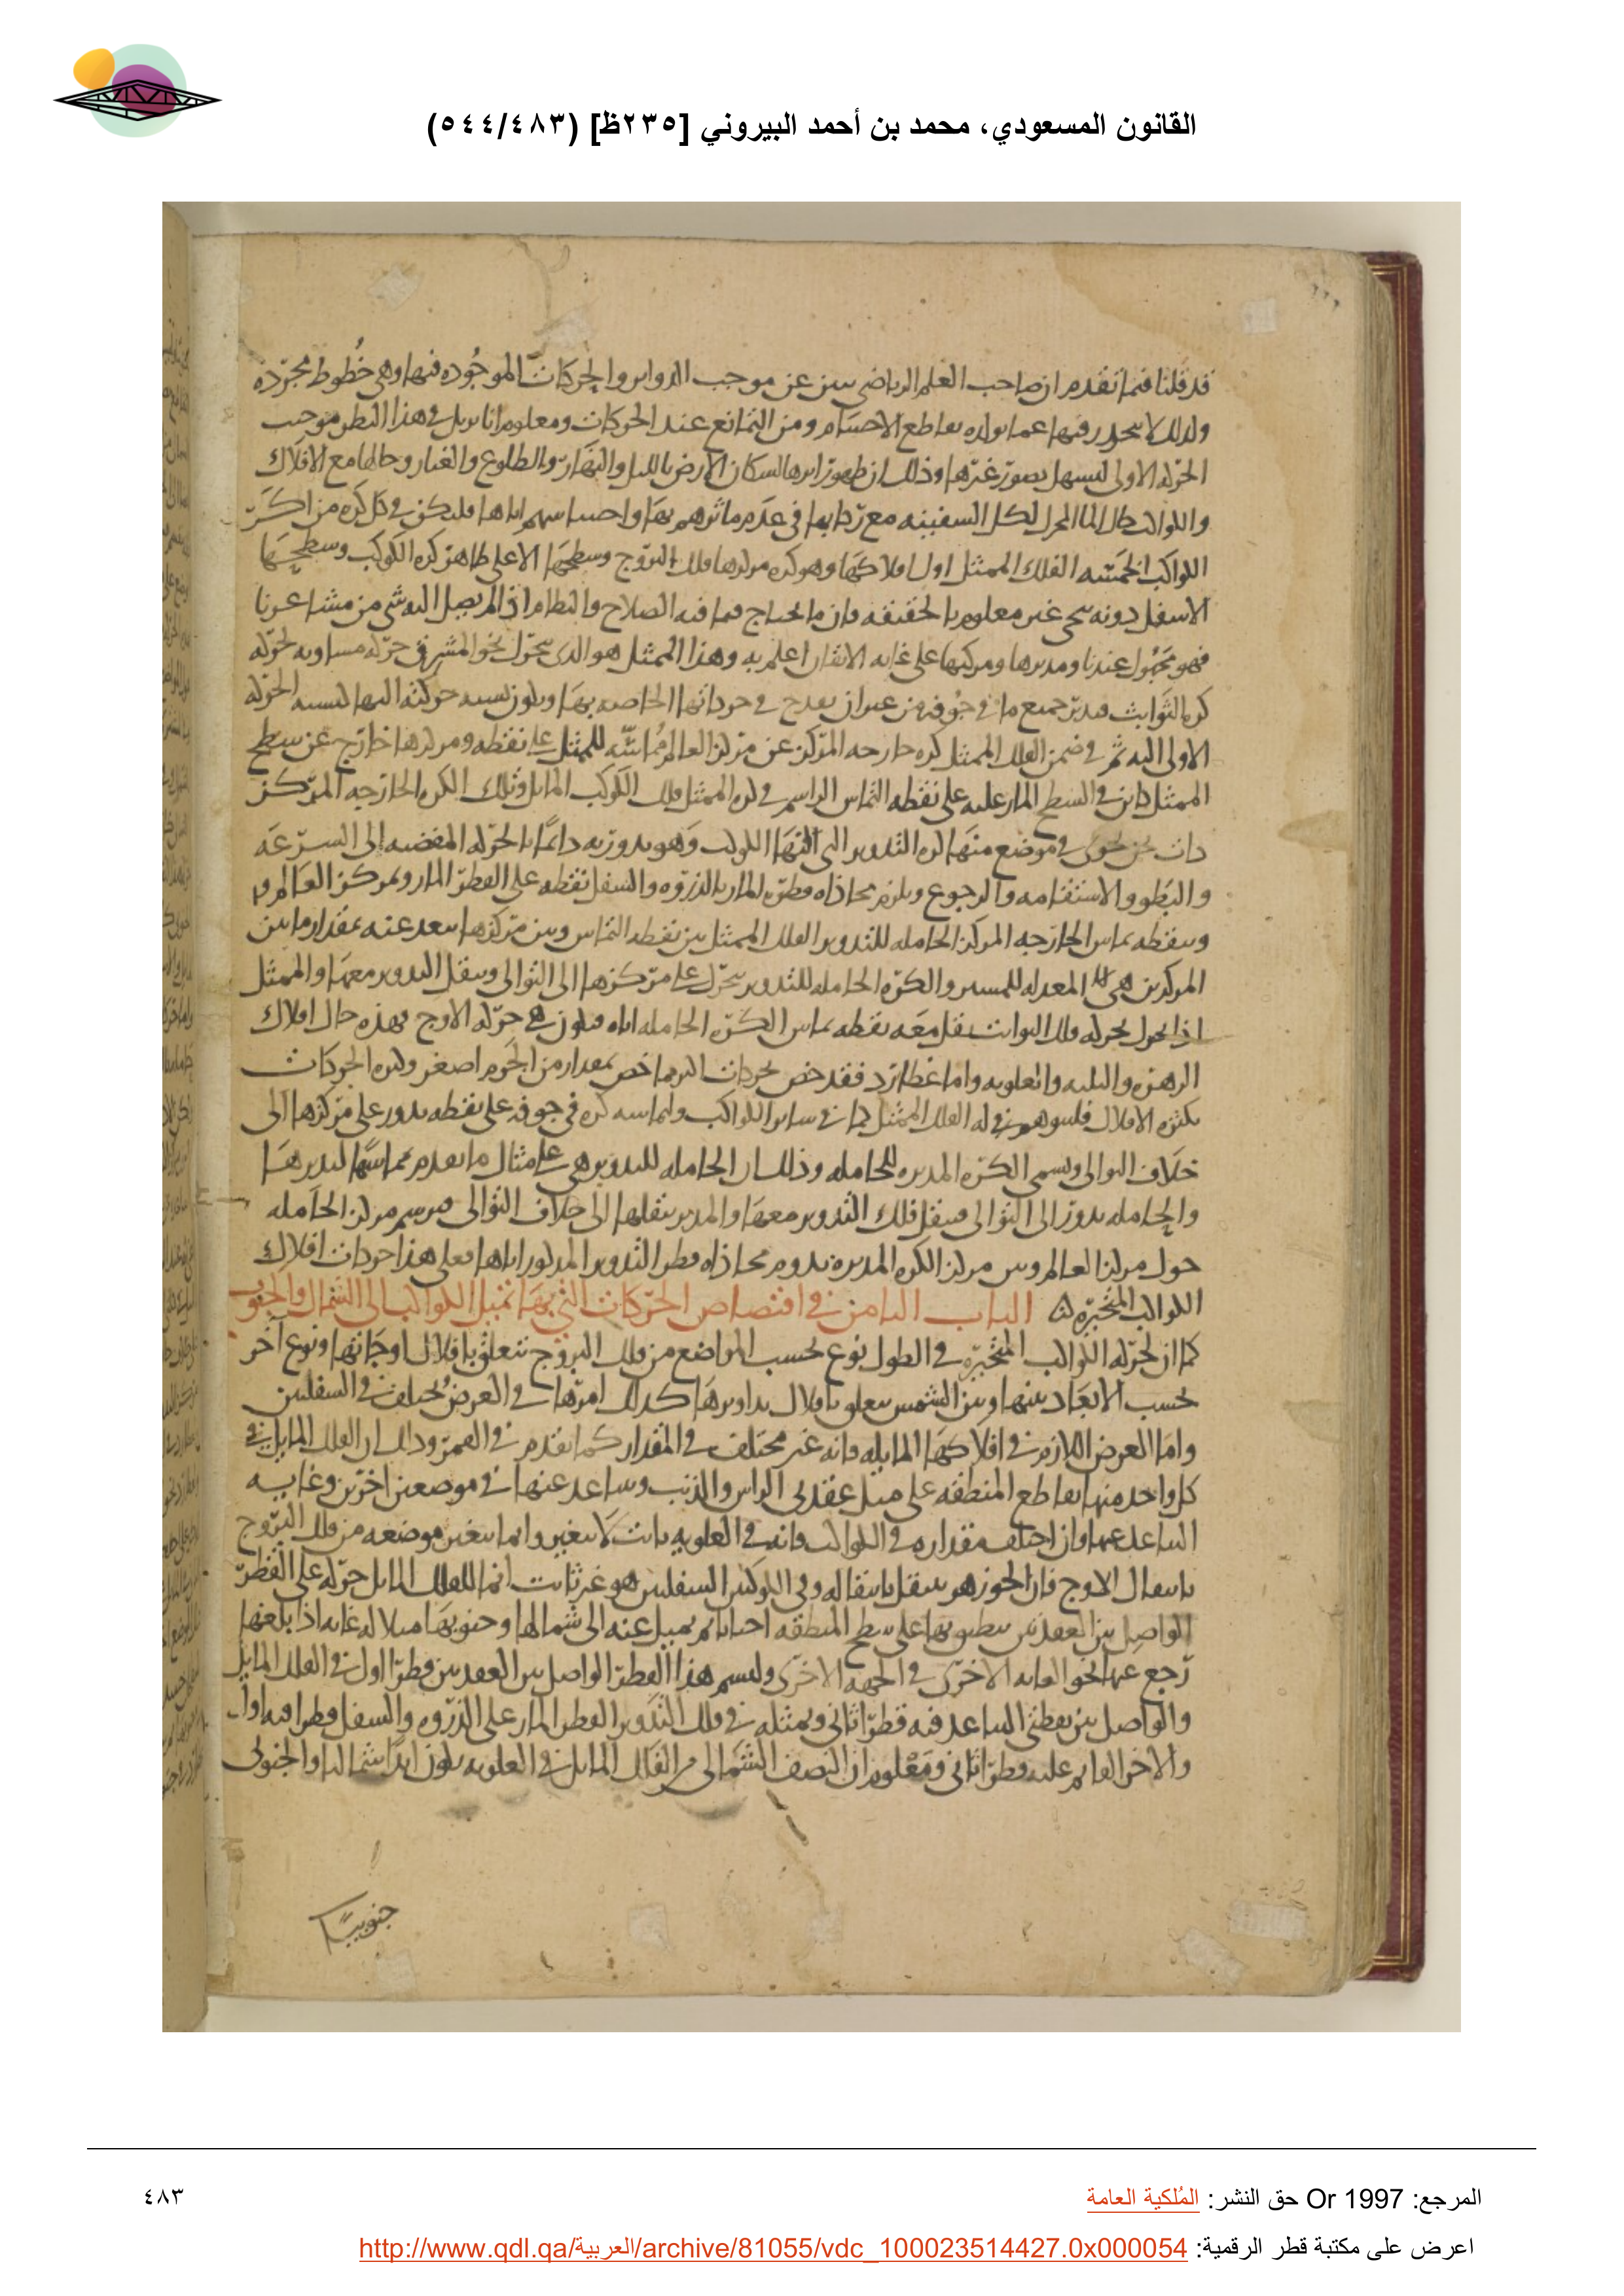 القانون المسعودي، محمد بن أحمد البيروني [٢٣٥ظ] (٥٤٤/٤٨٣)
قد قلنا فيما تقدم ان صاحب العلم الرياضي عن موجب الدوائر والحركات الموجوده فيها وهي خطوط مجرده
ولذلك لا فيها عما تقاطع الاجسام ومن التمانع عند الحركات ومعلوم انا في هذا النظر موجب
الحركه الاولى ليسهل تصور غيرها وذلك ان ظهور اثرها لسكان الارض بالليل والنهار والطلوع والغيار وحالها مع الافلاك
والكواكب كحال الماء المحرك لكل السفينه مع ركابها في عدم تاثرهم بها في كل كره من اكر
الكواكب الخمسه الفلك الممثل اول افلاكها وهو كره مركزها فلك البروج وسطحها الاعلى ظاهر كره الكوكب وسطحها
الاسفل دونه غير معلوم بالحقيقه فان ما يحتاج فيما فيه الصلاح والنظام اذا لم يصل اليه شي من مشاعرنا
فهو مجهول عندنا ومدبرها ومركبها على غايه الاتقان اعلم به وهذا الممثل هو الذي يتحرك نحو المشرق حركه مساويه لحركه
كره الثوابت جميع ما في جوفه من غير ان يقدح في حركاتها الخاصه بها ويكون نسبه حركته اليها كنسبه الحركه
الاولى اليه ثم في ضمن الفلك الممثل كره خارجه المركز عن مركز العالم مماسه للممثل على نقطه ومركزها خارج عن سطح
الممثل كائن في السطح المار عليه على نقطه التماس الراسم في كره الممثل فلك الكوكب المائل وتلك الكره الخارجه المركز
ذات في موضع منها كره التدوير التي الكوكب وهو يدور به دائما بالحركه المفضيه الى السرعه
والبطو والاستقامه والرجوع ويلزم محاذاه قطره المار بالذروه والسفل نقطه على القطر المار بمركز العالم
ونقطه تماس الخارجه المركز الحامله للتدوير الفلك الممثل بين نقطه التماس وبين مركزها يبعد عنه بمقدار ما بين
المركزين هي المعدله للمسير والكره الحامله للتدوير يتحرك على مركزها الى التوالي وينقل التدوير معها والممثل
اذا تحرك بحركه فلك الثوابت نقل معه نقطه تماس الكره الحامله اياه فيكون هي حركه الاوج فهذه حال افلاك
الزهره والثلثه العلويه واما عطارد فقد خص بحركات اكثر مما خص بمقدار من الجرم اصغر وكثره الحركات
بكثره الافلاك فليوهم في كره الفلك الممثل كما في سائر الكواكب وليماسه كره في جوفه على نقطه يدور على مركزها الى
خلاف التوالي ويسمى الكره المديره للحامله وذلك ان الحامله للتدوير هي على مثال ما تقدم يماسها لتديرها
والحامله يدور الى التوالي فينقل فلك التدوير معها والمدير ينقلها الى خلاف التوالي فيرسم مركز الحامله
حول مركز العالم وبين مركز الكره المديره يدوم محاذاه قطر التدوير المذكور اياها فعلى هذا حركات افلاك
الكواكب المتحيره الباب الثامن في اقتصاص الحركات التي بها تميل الكواكب الى الشمال والجنوب
كما ان لحركه الكواكب المتحيره في الطول نوع بحسب المواضع من فلك البروج تتعلق بافلاك اوجاتها ونوع آخر
بحسب الابعاد بينها وبين الشمس يتعلق بافلاك تداويرها كذلك امرها في العرض مختلف في السفليين
واما العرض اللازم في افلاكها المايله فانه غير مختلف في المقدار كما تقدم في القمر وذلك ان الفلك المايل في
كل واحد منها يقاطع المنطقه على مثل عقدتي الراس والذنب ويتباعد عنها في موضعين اخرين وغايه
التباعد عنها وان اختلف مقداره في الكواكب فانه في العلويه ثابت لا يتغير وانما يتغير موضعه من فلك البروج
بانتقال الاوج فان الجوزهر ينتقل بانتقاله وفي الكوكبين السفليين هو غير ثابت انما للفلك المايل حركه على القطر
الواصل بين العقدتين ينطبق بها على سطح المنطقه احيانا ثم يميل عنه الى شمالها وجنوبها ميلا له غايه اذا بلغها
رجع عنها نحو الغايه الاخرى في الجهه الاخرى وليسم هذا القطر الواصل بين العقدتين قطرا اول في الفلك المايل
والواصل بين نقطتي التباعد فيه قطرا ثاني وبمثله في فلك التدوير القطر المار على الذروه والسفل قطرا فيه اول
والاخر القايم عليه قطرا ثاني ومعلوم ان النصف الشمالي من الفلك المايل في العلويه يكون ابدا شماليا والجنوبي
جنوبيا
المرجع: Or 1997 حق النشر: المُلكية العامة
٤٨٣
اعرض على مكتبة قطر الرقمية: http://www.qdl.qa/العربية/archive/81055/vdc_100023514427.0x000054